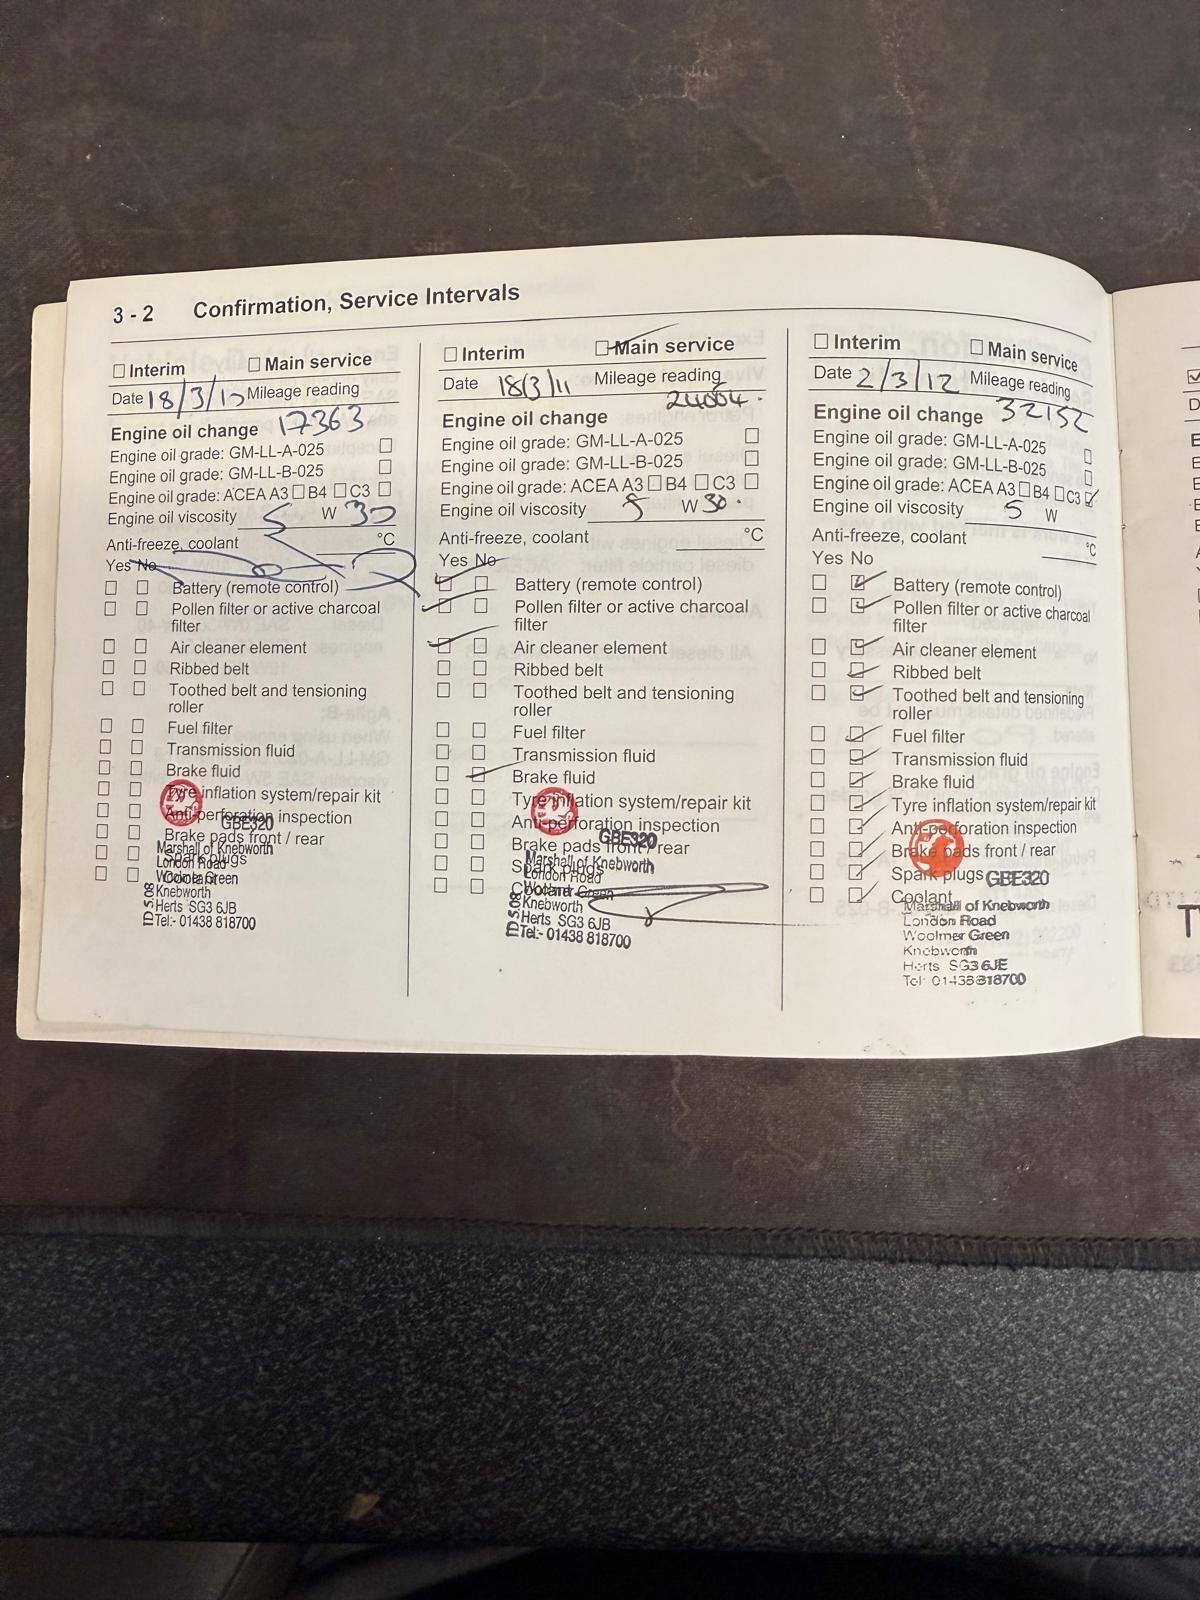 3 - 2 Confirmation, Service Intervals
Interim Main service
Date 18/3/10 Mileage reading
Engine oil change 17363
Engine oil grade: GM-LL-A-025
Engine oil grade: GM-LL-B-025
Engine oil grade: ACEA A3 B4 C3
Engine oil viscosity 5 W 30
Anti-freeze, coolant °C
Yes No
Battery (remote control)
Pollen filter or active charcoal
filter
Air cleaner element
Ribbed belt
Toothed belt and tensioning
roller
Fuel filter
Transmission fluid
Brake fluid
Tyre inflation system/repair kit
Anti-perforation inspection
GBE320
Brake pads front / rear
Marshall of Knebworth
Spark plugs
London Road
Coolant
Woolmer Green
Knebworth
Herts SG3 6JB
Tel:- 01438 818700
Interim Main service
Date 18/3/11 Mileage reading
24004.
Engine oil change
Engine oil grade: GM-LL-A-025
Engine oil grade: GM-LL-B-025
Engine oil grade: ACEA A3 B4 C3
Engine oil viscosity 5 W 30.
Anti-freeze, coolant °C
Yes No
Battery (remote control)
Pollen filter or active charcoal
filter
Air cleaner element
Ribbed belt
Toothed belt and tensioning
roller
Fuel filter
Transmission fluid
Brake fluid
Tyre inflation system/repair kit
Anti-perforation inspection
GBE320
Brake pads front / rear
Marshall of Knebworth
Spark plugs
London Road
Coolant
Woolmer Green
Knebworth
Herts SG3 6JB
Tel:- 01438 818700
Interim Main service
Date 2/3/12 Mileage reading
Engine oil change 32152
Engine oil grade: GM-LL-A-025
Engine oil grade: GM-LL-B-025
Engine oil grade: ACEA A3 B4 C3
Engine oil viscosity 5 W
Anti-freeze, coolant °C
Yes No
Battery (remote control)
Pollen filter or active charcoal
filter
Air cleaner element
Ribbed belt
Toothed belt and tensioning
roller
Fuel filter
Transmission fluid
Brake fluid
Tyre inflation system/repair kit
Anti-perforation inspection
Brake pads front / rear
Spark plugs GBE320
Coolant
Marshall of Knebworth
London Road
Woolmer Green
Knebworth
Herts SG3 6JE
Tel: 01438 818700